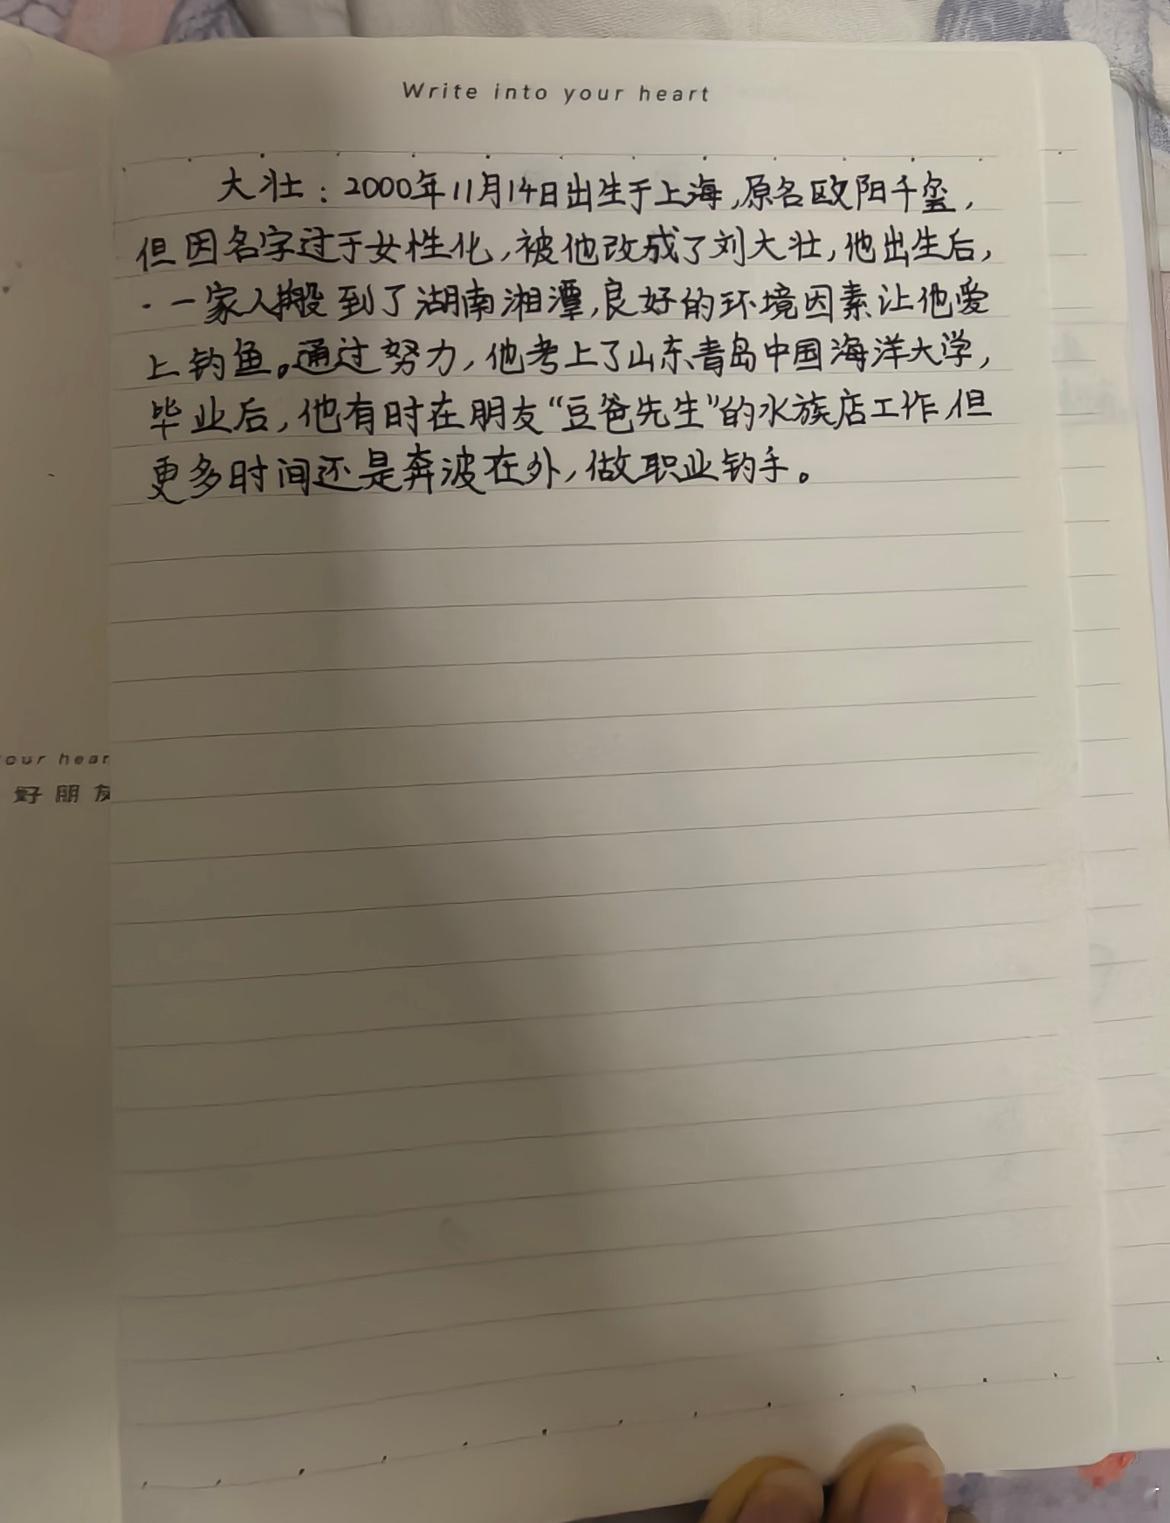 Write into your heart
大壮：2000年11月14日出生于上海,原名欧阳千玺，
但因名字过于女性化,被他改成了刘大壮,他出生后,
·一家人搬到了湖南湘潭,良好的环境因素让他爱
上钓鱼。通过努力,他考上了山东青岛中国海洋大学,
毕业后,他有时在朋友“豆爸先生”的水族店工作,但
更多时间还是奔波在外,做职业钓手。
our hear
好朋友